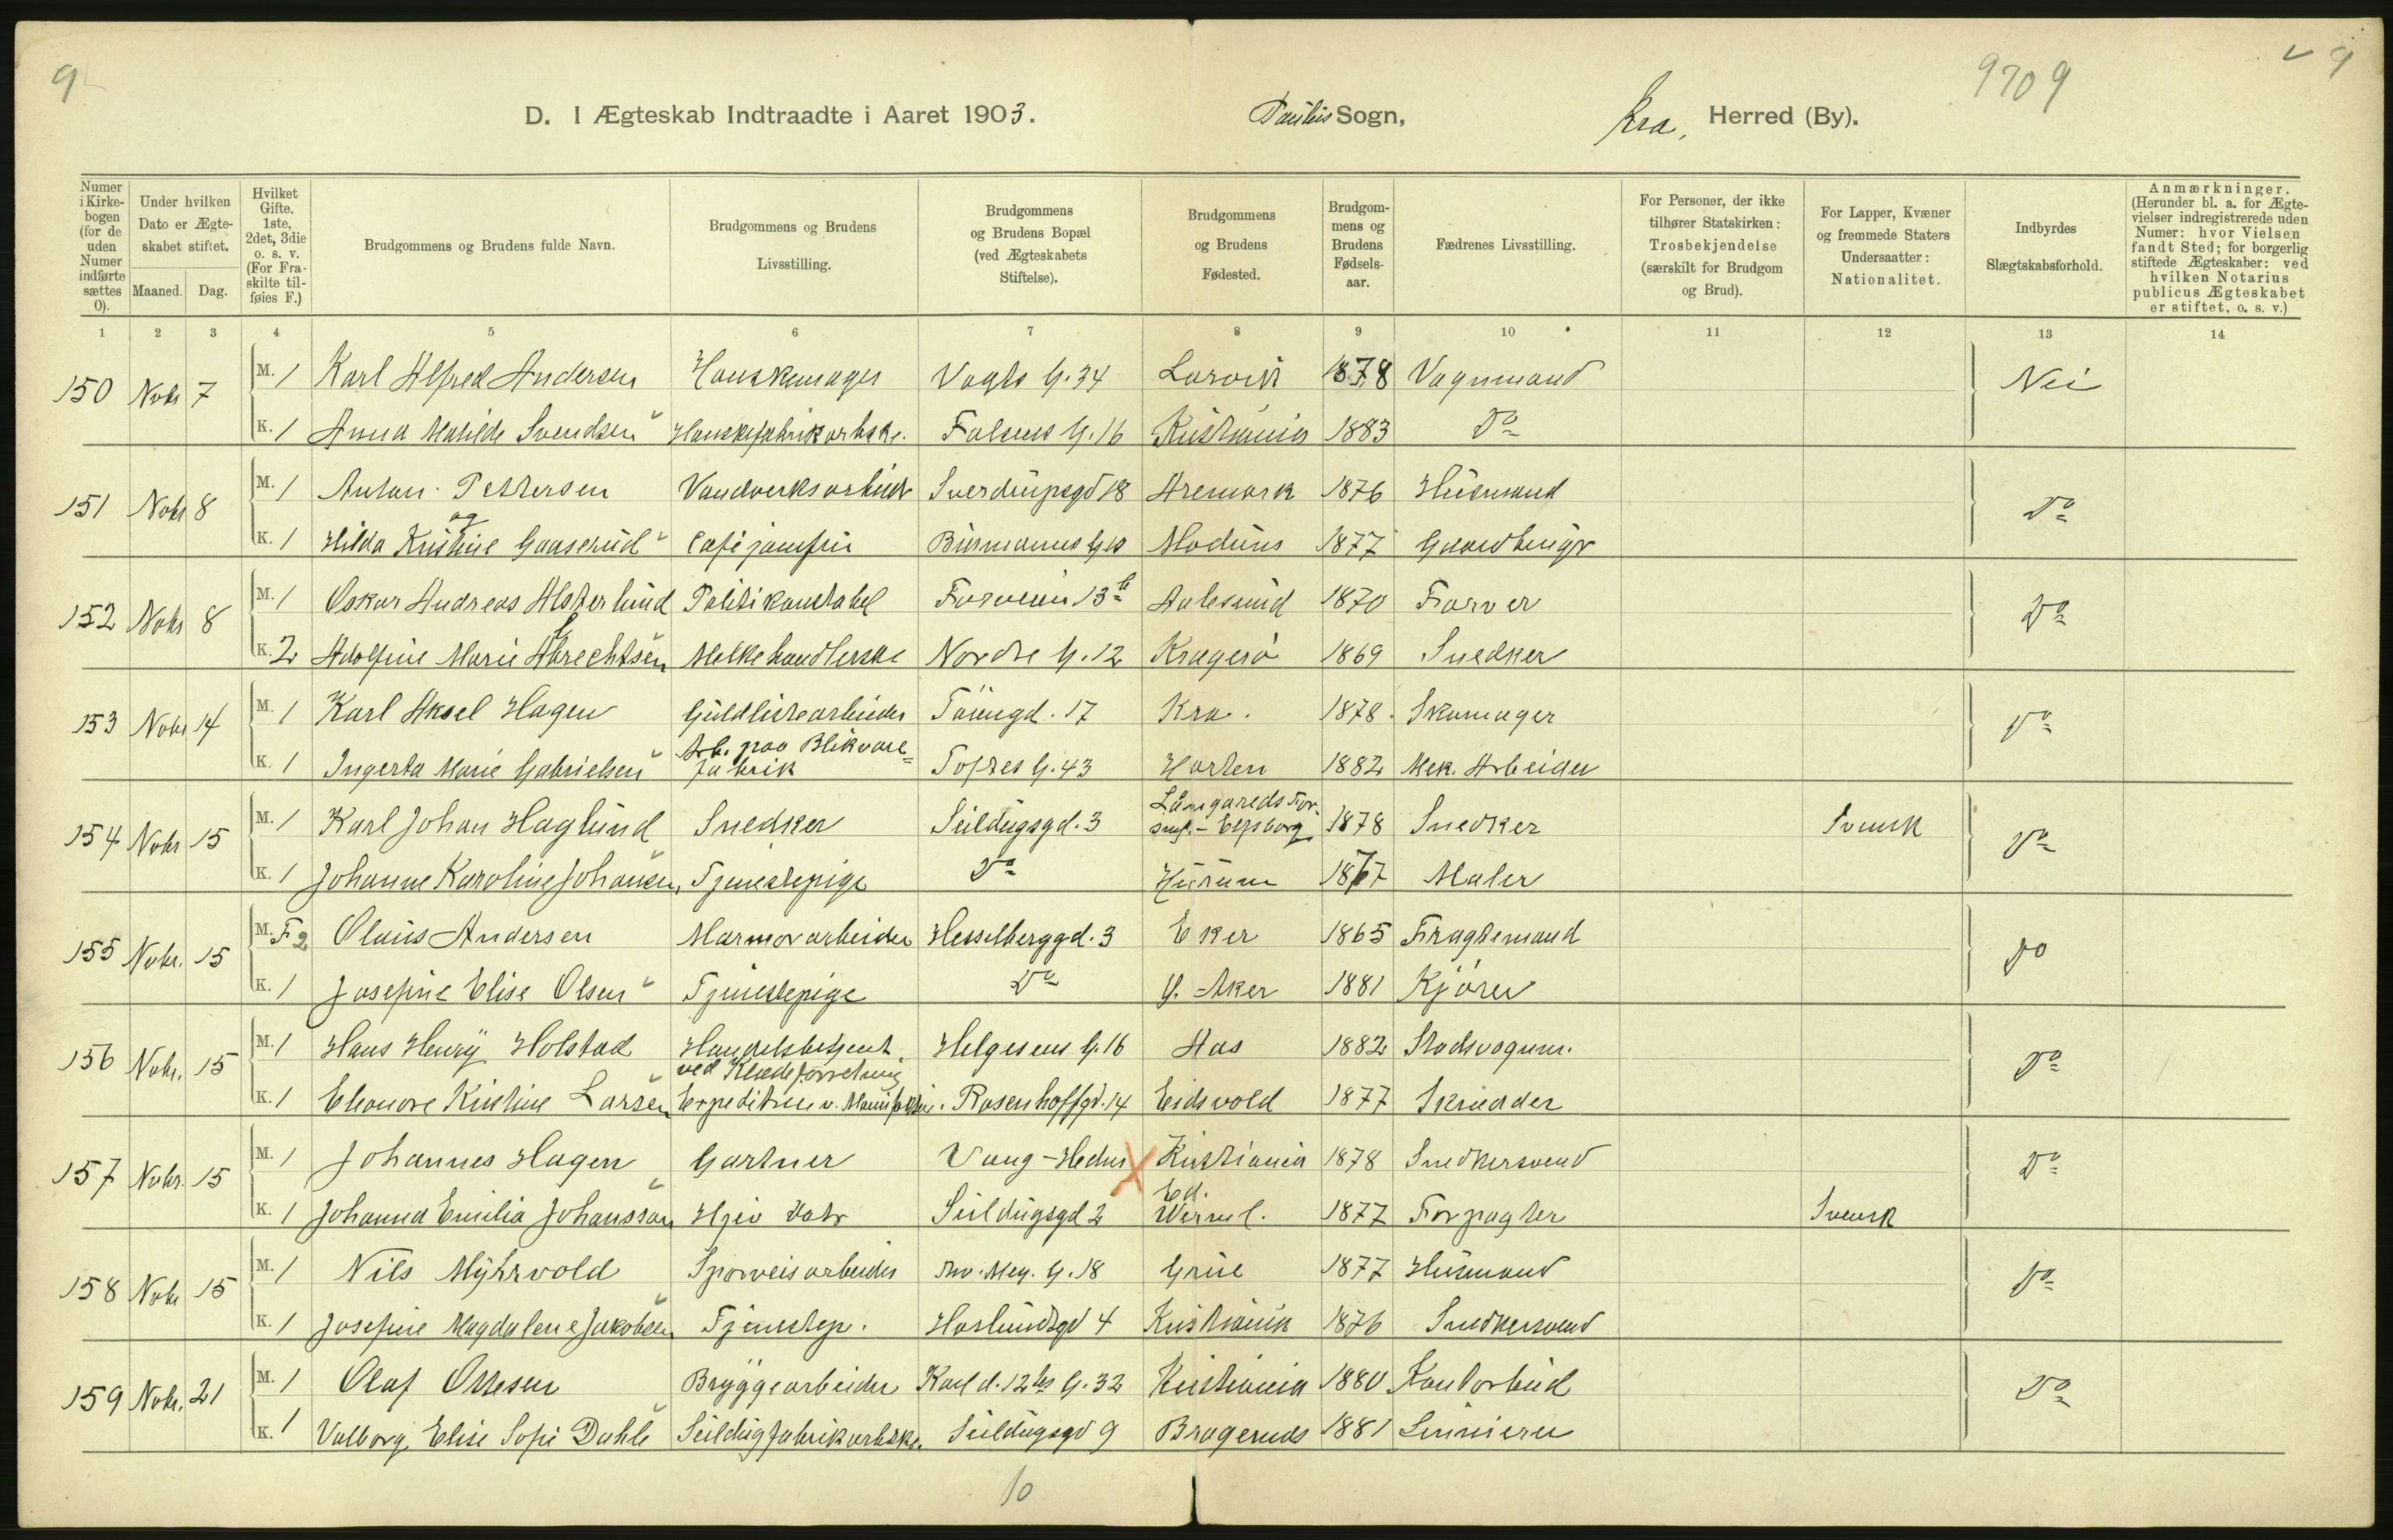 9
9709
9
D. I Ægteskab Indtraadte i Aaret 1903. Paulus Sogn, Kra, Herred (By).
Numer i Kirke-bogen (for de uden Numer indførte sættes 0).
Under hvilken Dato er Ægte-skabet stiftet.
Maaned. Dag.
Hvilket Gifte. 1ste, 2det, 3die o. s. v. (For Fra-skilte til-føies F.)
Brudgommens og Brudens fulde Navn.
Brudgommens og Brudens Livsstilling.
Brudgommens og Brudens Bopæl (ved Ægteskabets Stiftelse).
Brudgommens og Brudens Fødested.
Brudgom-mens og Brudens Fødsels-aar.
Fædrenes Livsstilling.
For Personer, der ikke tilhører Statskirken: Trosbekjendelse (særskilt for Brudgom og Brud).
For Lapper, Kvæner og fremmede Staters Undersaatter: Nationalitet.
Indbyrdes Slægtskabsforhold.
Anmærkninger. (Herunder bl. a. for Ægte-vielser indregistrerede uden Numer: hvor Vielsen fandt Sted; for borgerlig stiftede Ægteskaber: ved hvilken Notarius publicus Ægteskabet er stiftet, o. s. v.)
1 2 3 4 5 6 7 8 9 10 11 12 13 14
150 Nobr 7 M. 1 Karl Alfred Andersen Hanskemager Vogts G. 34 Larvik 1878 Vognmand Nei
K. 1 Anna Matilde Svendsen Hanskefabrikarbske. Falsens G. 16 Kristiania 1883 Do
151 Nobr 8 M. 1 Anton Pettersen Vandverksarbeider Sverdrupsgd 18 Aremark 1876 Husmand Do
K. 1 Hilda Kristine Gaaserud Cafejomfru Burmanns G. 10 Modums 1877 Gaardbruger
og
152 Nobr 8 M. 1 Oskar Andreas Alsterlund Politikonstabel Forveien 13 b Aalesund 1870 Farver Do
K. 2 Adolfine Marie Albrechtsen Melkehandlerske Nordre G. 12 Kragerö 1869 Snedker
153 Nobr 14 M. 1 Karl Aksel Hagen Guldlistearbeider Töiengd. 17 Kra. 1878. Skomager Do
K. 1 Ingerta Marie Gabrielsen Arb. paa Blikvare= fabrik Toftes G. 43 Horten 1882 Mek. Arbeider
154 Nobr 15 M. 1 Karl Johan Haglund Snedker Seildugsgd. 3 Långareds For- smf. - Elfsborg 1878 Snedker Svensk Do
K. 1 Johanne Karoline Johansen, Tjenestepige Do Hurum 1867 Maler
155 Nobr. 15 M. F 2 Olaus Andersen Marmorarbeider Hesselberggd. 3 Eker 1865 Fragtemand Do
K. 1 Josefine Elise Olsen Tjenestepige Do V. Aker 1881 Kjörer
156 Nobr. 15 M. 1 Hans Henry Holstad Handelsbetjent ved Klædeforretning Helgesens G. 16 Aas 1882 Stadsvognm. Do
K. 1 Eleonore Kristine Larsen Expeditrice v. Manufaktur. Rosenhoffgd. 14 Eidsvold 1877 Skrædder
157 Nobr. 15 M. 1 Johannes Hagen Gartner Vang - Hedm X Kristiania 1878 Snedkersvend Do
K. 1 Johanna Emilia Johansson Hjev Datr Seildugsgd 2 Ed. WermL. 1877 Forpagter Svensk
158 Nobr 15 M. 1 Nils Myhrvold Sporveisarbeider Thv. Mey. G. 18 Grue 1877 Husmand Do
K. 1 Josefine Magdalene Jakobsen Tjenestep. Haslundsgd 4 Kristiania 1876 Snedkersvend
159 Nobr. 21 M. 1 Olaf Ottesen Bryggearbeider Karl d. 12tes G. 32 Kristiania 1880 Kontorbud Do
K. 1 Valborg Elise Sofie Dahle Seildugfabrikarbske. Seildugsgd 9 Bragernes 1881
10